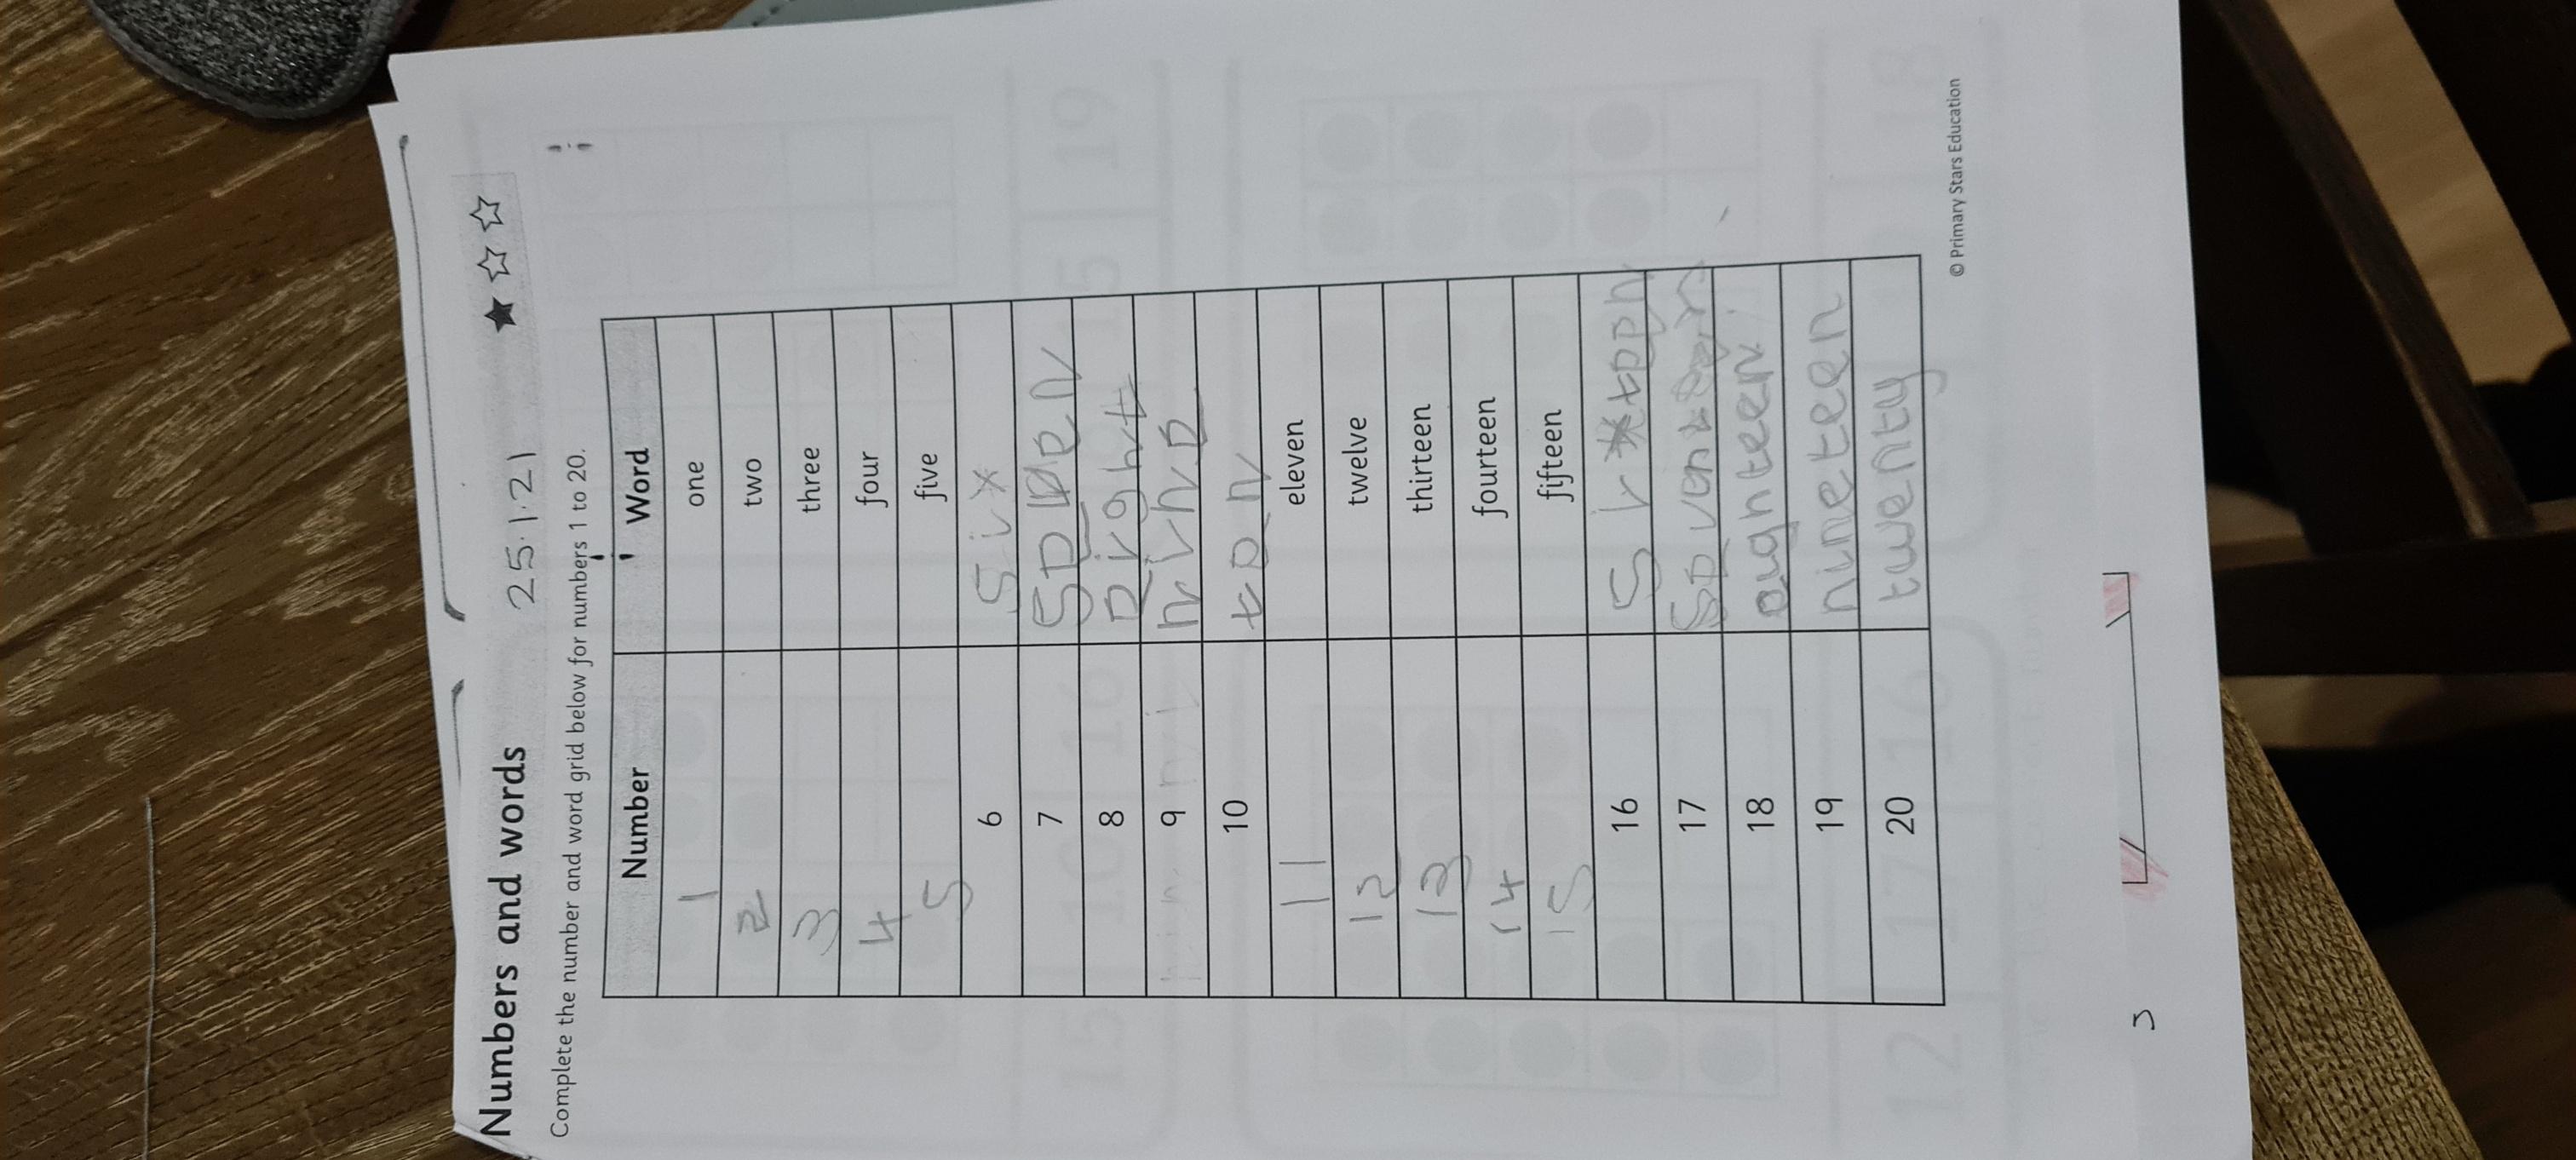 Numbers and words
25.1.21
Complete the number and word grid below for numbers 1 to 20.
Number Word
1 one
2 two
3 three
4 four
5 five
6 six
7 seven
8 eight
9 nine
10 ten
11 eleven
12 twelve
13 thirteen
14 fourteen
15 fifteen
16 sixteen
17
18 eighteen
19 nineteen
20 twenty
© Primary Stars Education